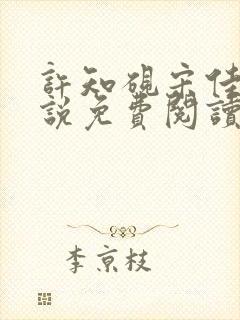 許知硯宋佳
說免費閱讀
李京枝